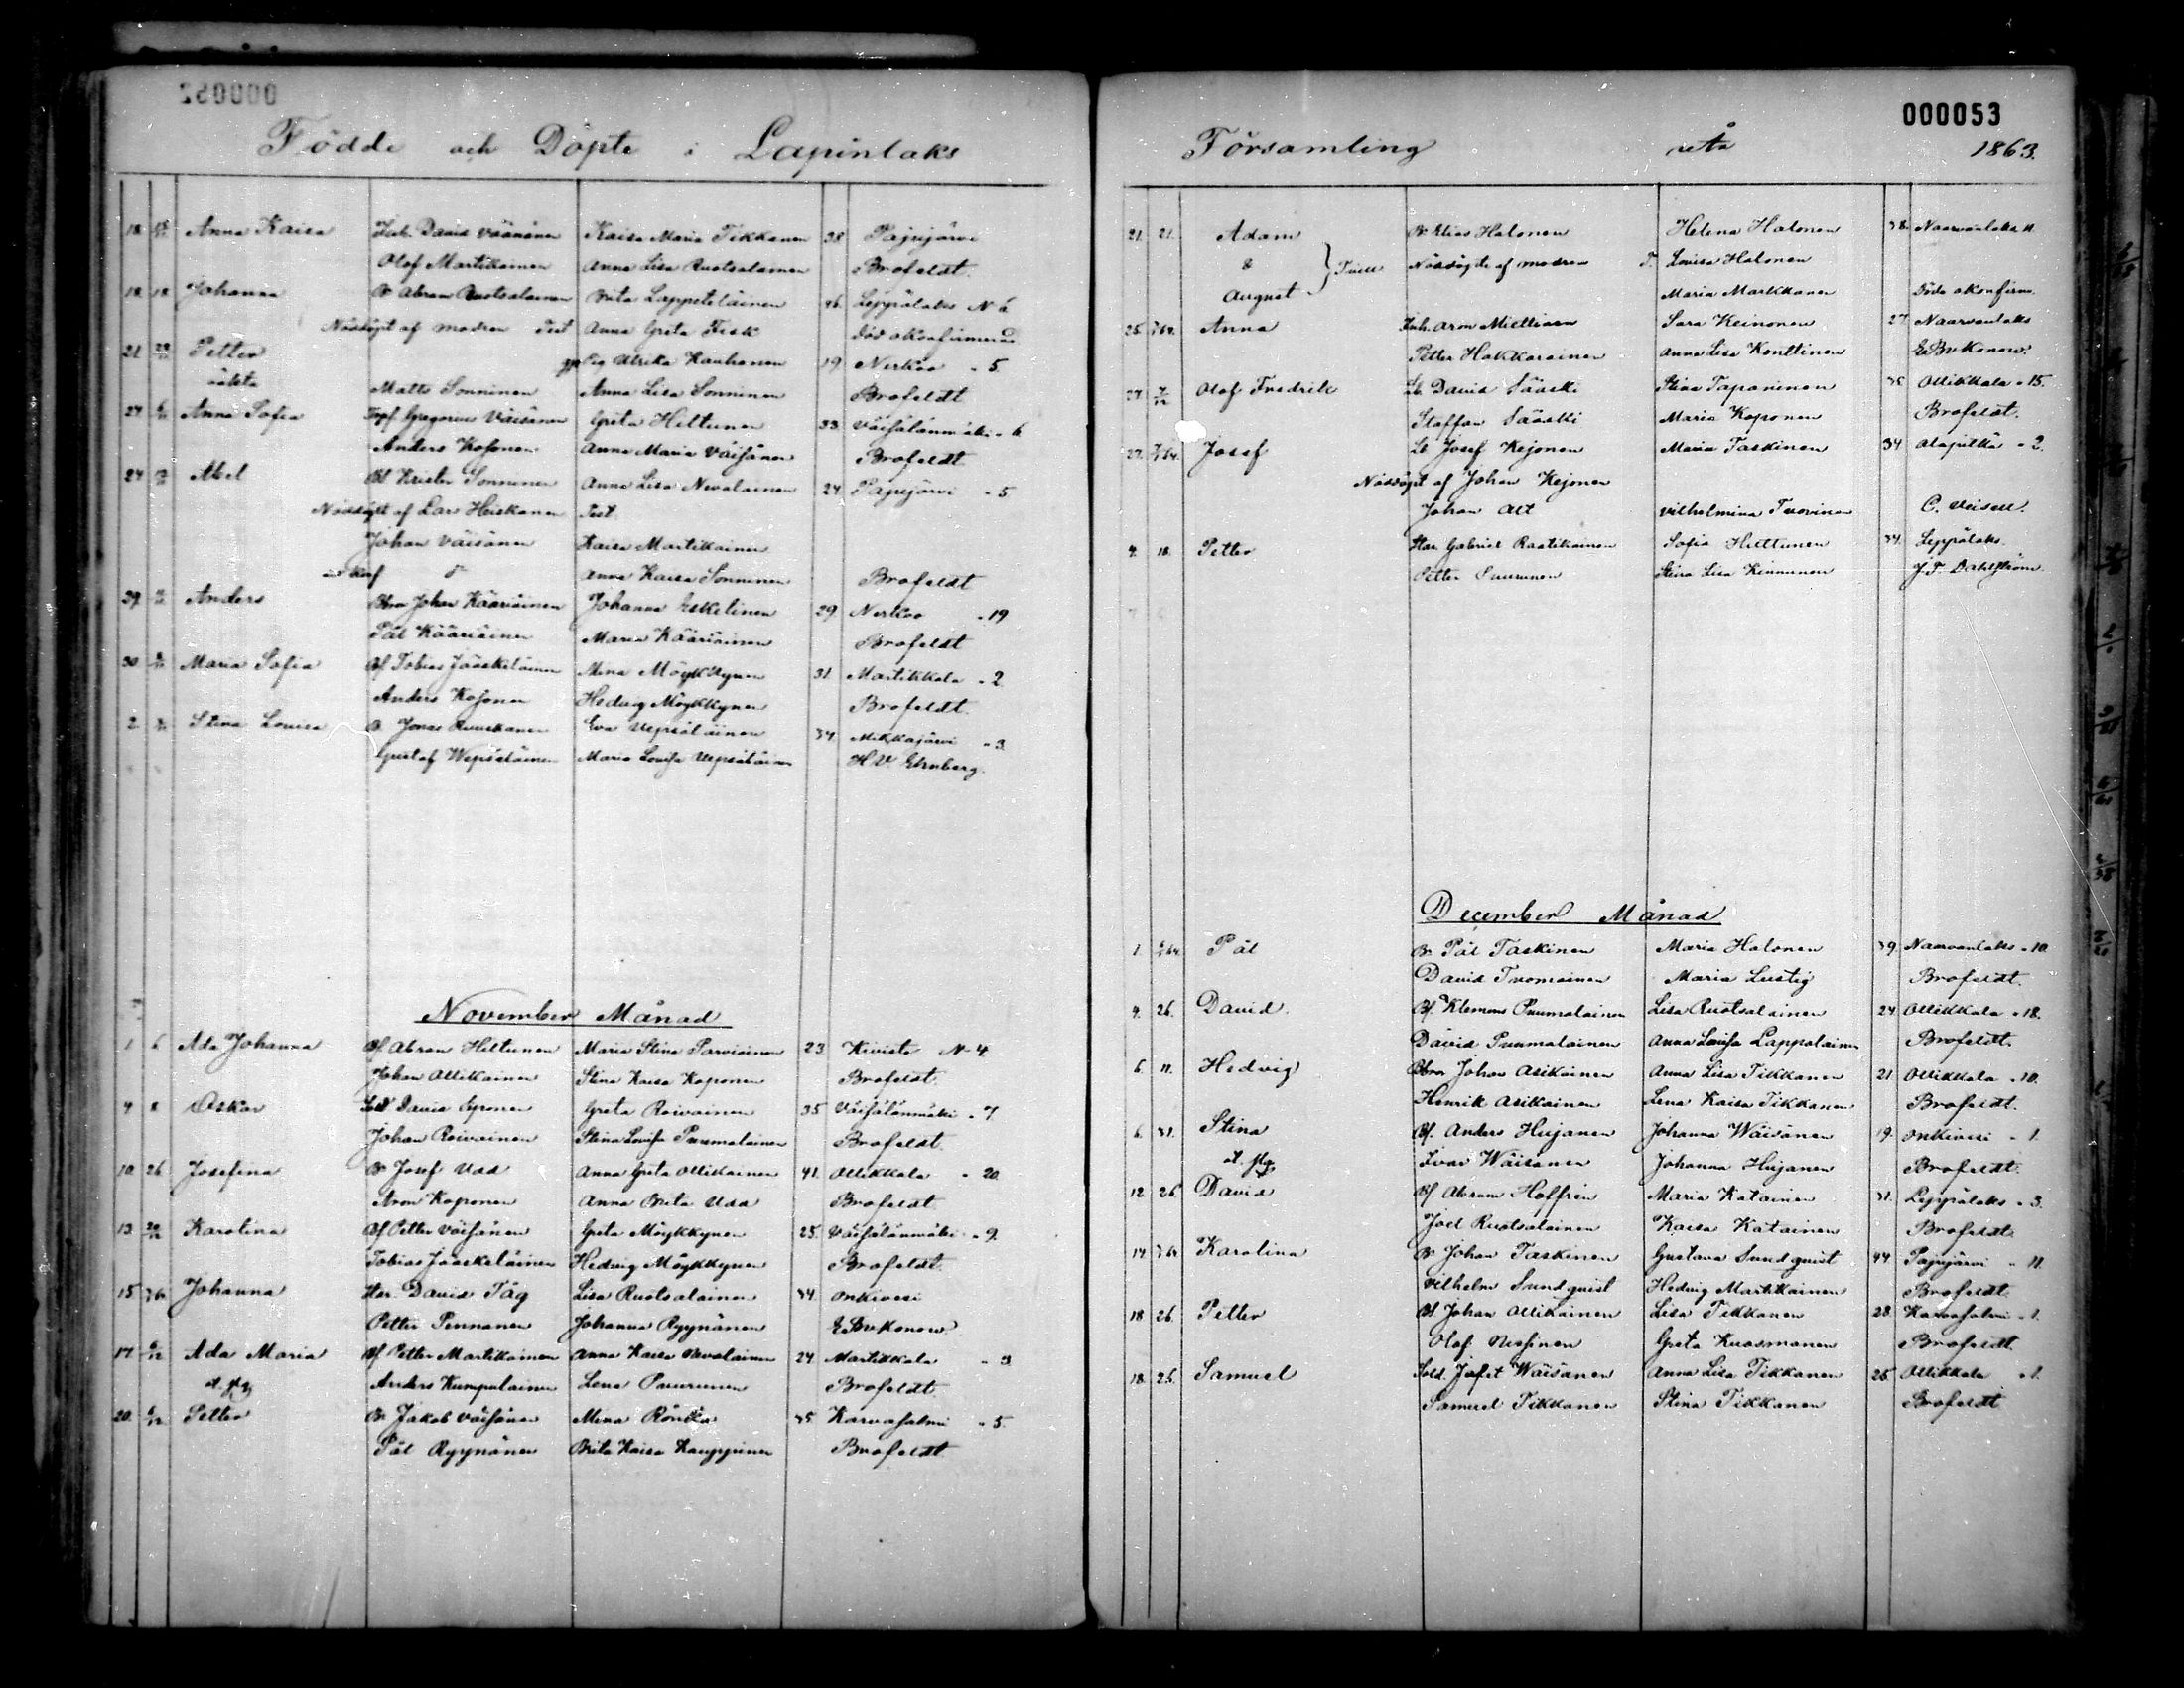 Födde och Döpte i Lapinlaks
18. Anna Kaisa Inh. David Väänänen Kaisa Maria Tikkanen 38 Pajujärvi
Olof Martikainen Anna Lisa Ruotsalainen Brofeldt.
18. 18 Johanna B. Abram Ruotsalainen Brita Lappeteläinen 46. Leppälaks N 6
Nöddöpt af modren Test Anna Greta Fisk död okonfirmerad
21. Petter Pig. Ulrika Kauhanen 19. Nerkoo " 5.
oäkta Matts Sonninen Anna Lisa Sonninen Brofeldt
24. Anna Sofia Gregorius Väisänen Greta Hiltunen 33. Väisälänmäki " 6
Anders Kosonen Anna Maria Väisänen Brofeldt
24 Abel Krister Sonninen Anna Lisa Nevalainen 24. Pajujärvi " 5
Nöddöpt af Lars Heiskanen Test.
Johan Väisänen Kaisa Martikainen
Anna Kaisa Sonninen Brofeldt
29. Anders Johan Kääriäinen Johanna Eskelinen 29. Nerkoo " 19
Pål Kääriäinen Maria Kääriäinen Brofeldt
30. Maria Sofia Bf Tobias Jääskeläinen Mina Möykkynen 31. Martikkala " 2.
Anders Kosonen Hedvig Möykkynen Brofeldt.
2. Stina Lovisa B. Jonas Ruuskanen Eva Vepsäläinen 34. " 3.
Gustaf Wepsäläinen Maria Lovisa Vepsäläinen H.V. Ehrnberg.
November Månad
1. 6. Ada Johanna Bf Abram Hiltunen Maria Stina Parviainen 23. Kivistö N 4
Johan Ollikainen Stina Kaisa Koponen Brofeldt.
4. 8 Oskar Sold David Greta Roivainen 35. Väisälänmäki " 7
Johan Roivainen Stina Lovisa Puumalainen Brofeldt.
10. 26. Josefina B. Josef Udd Anna Greta Ollikainen 41. Ollikkala " 20.
Aron Koponen Anna Brita Udd Brofeldt
13. Karolina Bf Petter Väisänen Greta Möykkynen 25. Väisälänmäki " 9.
Tobias Jääskeläinen Hedvig Möykkynen Brofeldt.
15. Johanna David Tåg Lisa Ruotsalainen 34. Onkivesi
Petter Pennanen Johanna Ryynänen
17. Ada Maria Bf Petter Martikainen Anna Kaisa Nevalainen 24. Martikkala " 3
Anders Kumpulainen Lena Puurunen Brofeldt
20. Petter B. Jakob Väisänen Mina Rönkä 35. Karvasalmi " 5.
Pål Ryynänen Brita Kaisa Kauppinen Brofeldt
000053
Församling år 1863.
21. 21. Adam B. Elias Halonen Helena Halonen 38. Naarvanlaks 11.
& Tvill Nöddöpte af modren T. Lovisa Halonen
August Maria Markkanen Döda okonfirm.
25. Anna Inh. Aron Miettinen Sara Keinonen 27. Naarvanlaks
Petter Hakkarainen Anna Lisa Konttinen
27. Olof Fredrik Lb. David Sääski Stina Taponinen 35 Ollikkala " 15.
Staffan Sääski Maria Koponen Brofeldt.
27. Josef Lb Josef Kejonen Maria Taskinen 34. Alapitkä " 2.
Nöddöpt af Johan Kejonen
Johan Alt Vilhelmina Tuovinen C. Veisell.
9. 10. Petter Gabriel Raatikainen Sofia Huttunen 34. Leppälaks.
Petter Puurunen Stina Lisa Kinnunen J.F. Dahlström.
December Månad
1. Pål B. Pål Taskinen Maria Halonen 39. Naarvanlaks " 10.
David Tuomainen Maria Lustig Brofeldt.
4. 26. David Bf. Klemens Puumalainen Lisa Ruotsalainen 24. Ollikkala " 18.
David Puumalainen Anna Lovisa Lappalainen Brofeldt.
6. 11. Hedvig Johan Asikainen Anna Lisa Tikkanen 21 Ollikkala " 10.
Henrik Asikainen Lena Kaisa Tikkanen Brofeldt.
6. 31. Stina Bf. Anders Hujanen Johanna Wäisänen 19. Onkivesi " 1.
Ivar Wäisänen Johanna Hujanen Brofeldt.
12. 26. David Bf Abram Hoffrén Maria Katainen 31. Leppälaks " 3.
Joel Ruotsalainen Kaisa Katainen Brofeldt.
14. Karolina B. Johan Taskinen Gustava Sundquist 44 Pajujärvi " 11.
Vilhelm Sundquist Hedvig Martikainen Brofeldt.
18. 26. Petter Bf Johan Ollikainen Lisa Tikkanen 28. Karvasalmi " 1.
Olof Nissinen Greta Kuosmanen Brofeldt.
18. 26. Samuel Sold. Jafet Wäisänen Anna Lisa Tikkanen 25. Ollikkala " 1.
Samuel Tikkanen Stina Tikkanen Brofeldt